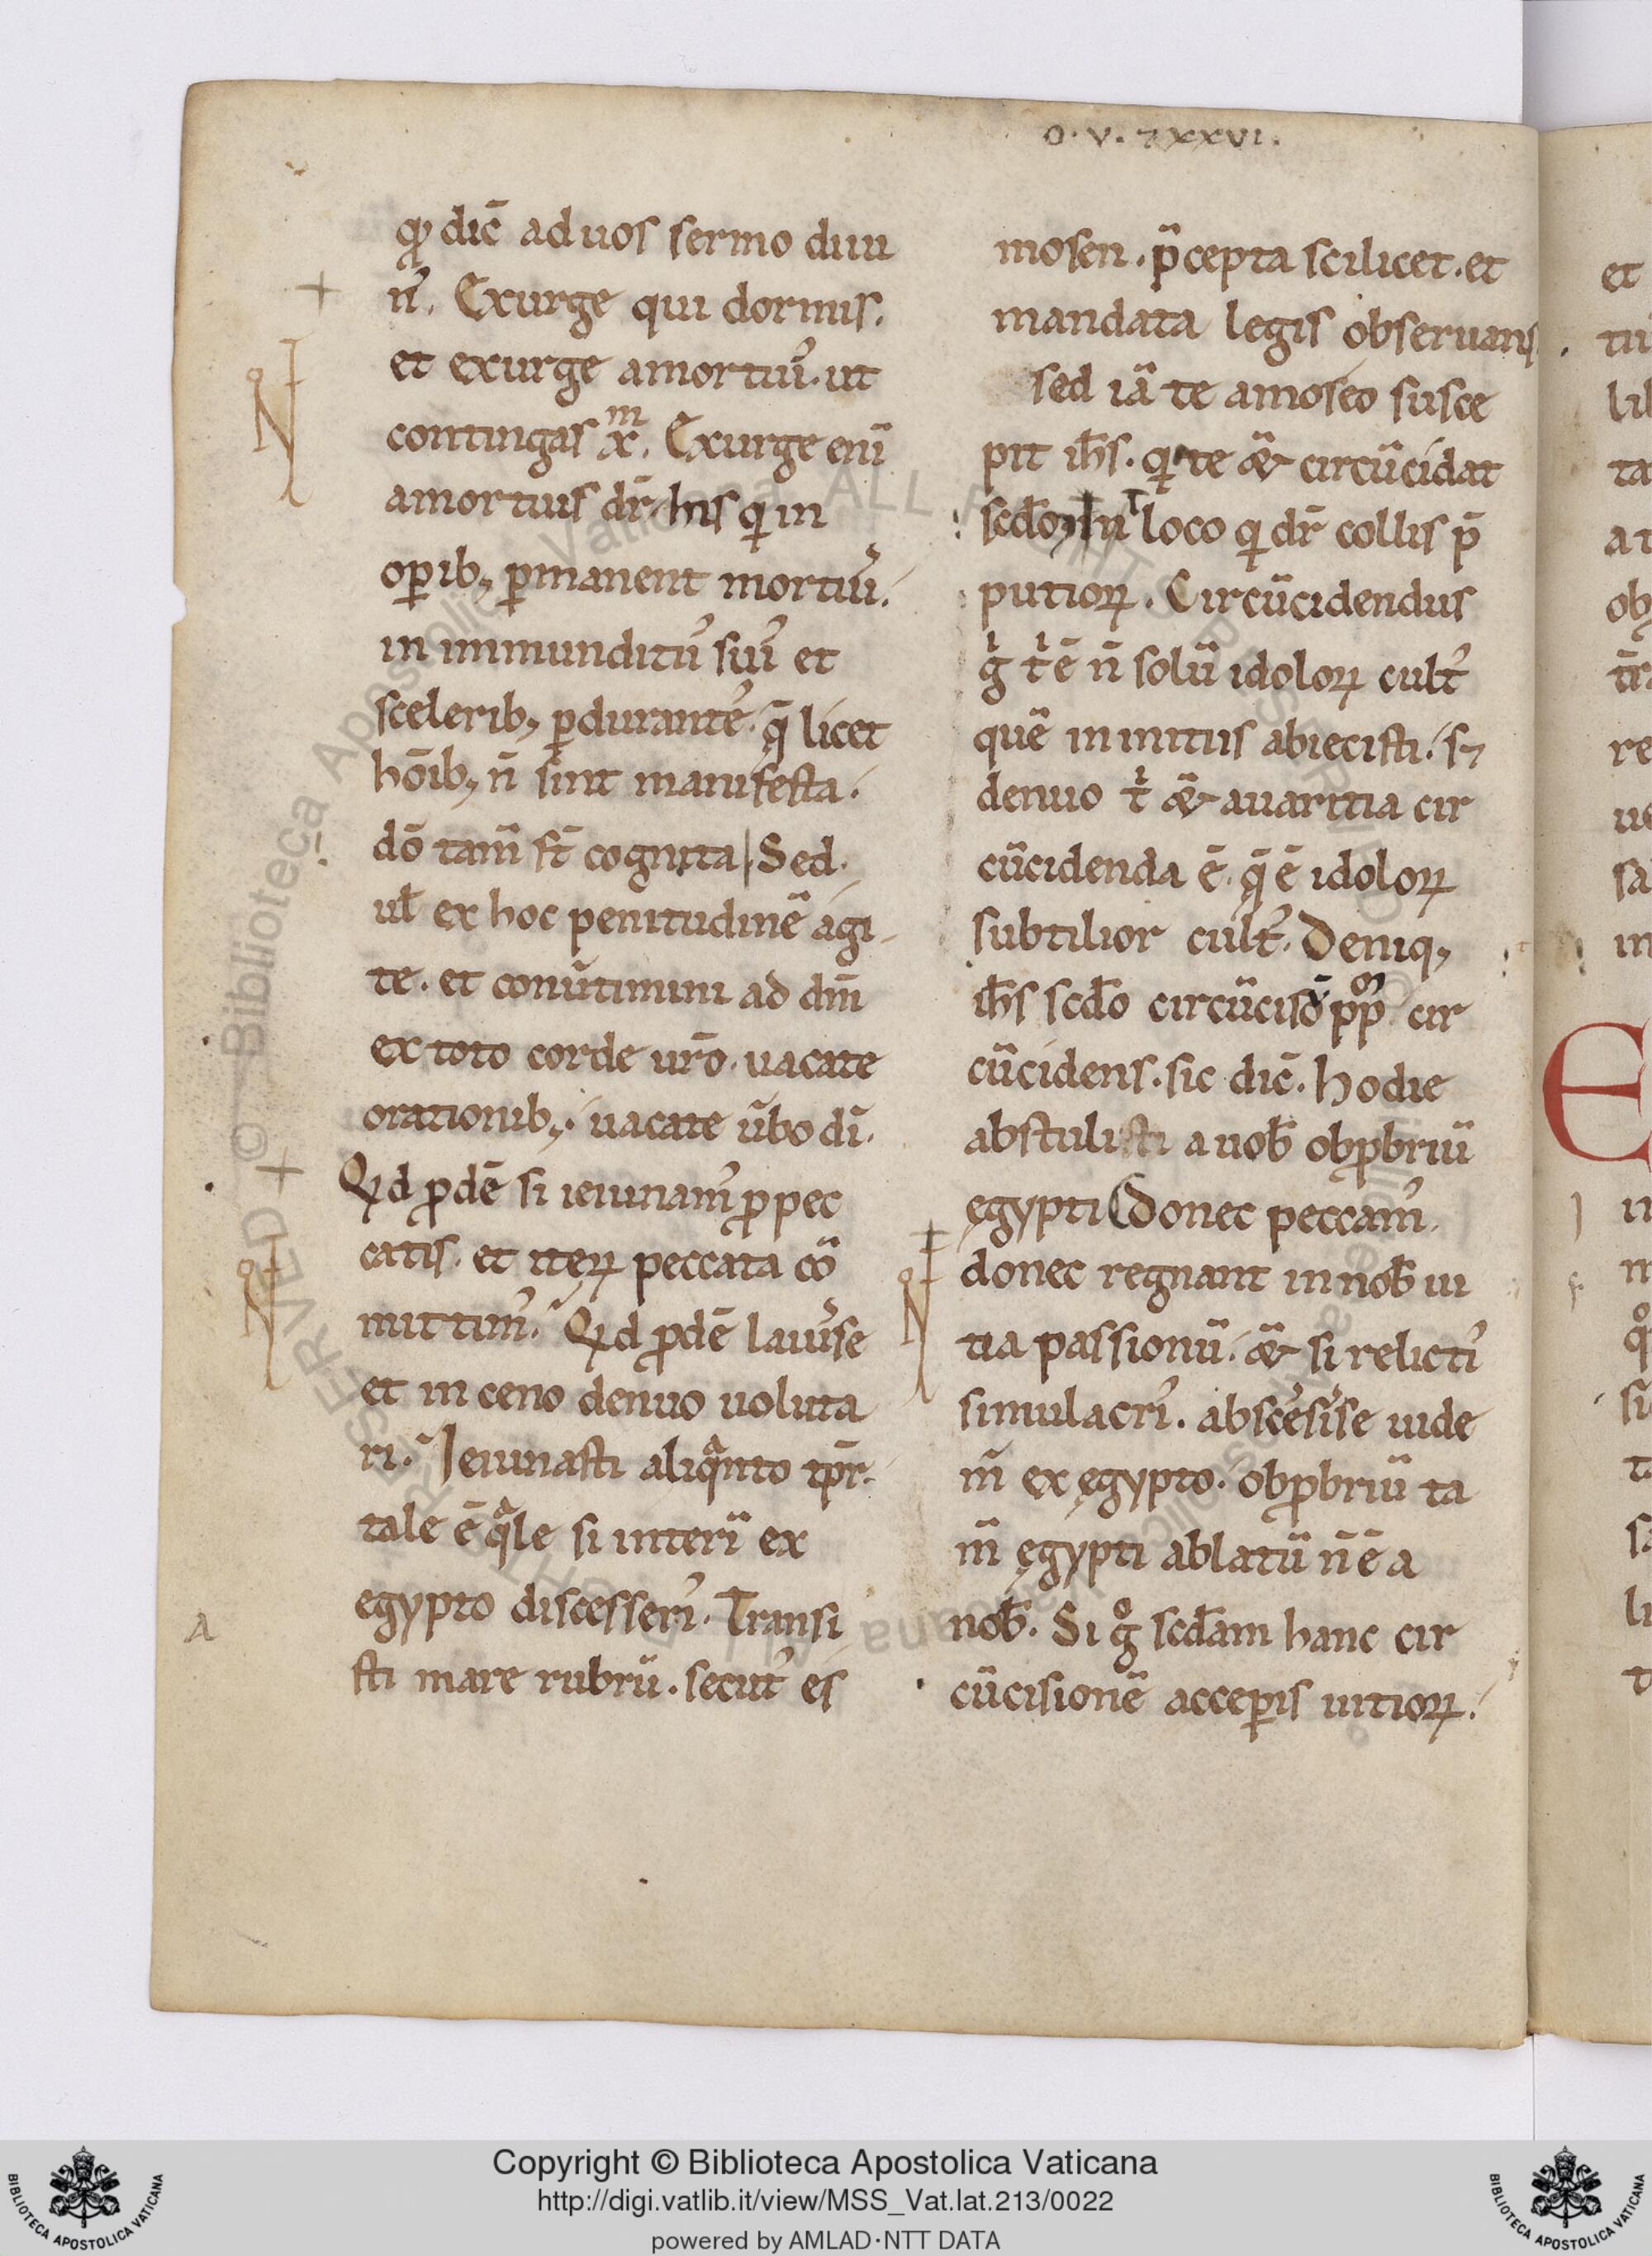 O·V·⁊XXVI.
qͥ dic̄ ad uos sermo diui
nꝰ. Exurge qui dormis.
et exurge a mortuis. ut
contingas xᵐ. Exurge enī
a mortuis dr̄ his qͥ in
oꝑibꝫ ꝑmanent mortuis.
in immunditiis suis et
sceleribꝫ ꝑdurantes. q̄ licet
hōibꝫ n̄ sint manifesta.
dō tam̄ st̄ cognita. Sed
ul̄ ex hoc penitudinē agi
te. et conūtimini ad dm̄
ex toto corde ur̄o. uacate
orationibꝫ. uacate ūbo dī.
Qͥd ꝓdē si ieiunamꝰ ꝓ pec
catis. et iteꝝ peccata cō
mittimꝰ. Qͥd ꝓdē lauisse
et in ceno denuo uoluta
ri. Ieiunasti aliqͣnto tp̄r
tale ē qͣle si interī ex
egypto discesseris. Transi
sti mare rubrū. secutꝰ es
mosen. p̄cepta scilicet. et
mandata legis obseruans
sed iā te a moseo susce
pit ih̄s. qͥ te & circūcidat
scd̄o in loco qͥ dr̄ collis p̄
putioꝝ. Circūcidendus
gͥ tͥ ē n̄ solū idoloꝝ cultꝰ
quē in initiis abiecisti. sꝫ
denuo tͥ & auaritia cir
cūcidenda ē. q̄ ē idoloꝝ
subtilior cultꝰ. Deniqꝫ
ih̄s scd̄o circūcisōē ppm̄ cir
cūcidens. sic dic̄. hodie
abstulisti a uob̄ obꝓbriū
ęgypti Donec peccamꝰ.
donec regnant in nob̄ ui
tia passionū. & si relictis
simulacris. abscessisse uide
m̄ ex ęgypto. obꝓbriū ta
m̄ ęgypti ablatū n̄ ē a
nob̄. Si gͦ scd̄am hanc cir
cūcisionē acceꝑis uitioꝝ.
A
© Biblioteca Apostolica Vaticana ALL RIGHTS RESERVED
Copyright © Biblioteca Apostolica Vaticana
http://digi.vatlib.it/view/MSS_Vat.lat.213/0022
powered by AMLAD·NTT DATA
BIBLIOTECA APOSTOLICA VATICANA
BIBLIOTECA APOSTOLICA VATICANA